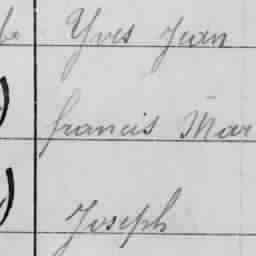 Yves Jean
francis Mar
Joseph